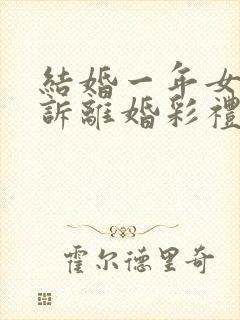 結婚一年女
訴離婚彩禮
霍尔德里奇